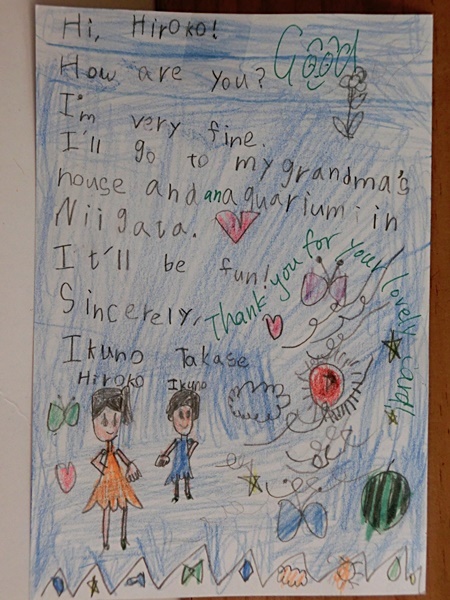 Hi, Hiroko!
Good
How are you?
I'm very fine.
I'll go to my grandma's
house and an aquarium in
Niigata.
It'll be fun!
Thank you for your lovely card!
Sincerely,
Ikuno Takase
Hiroko Ikuno